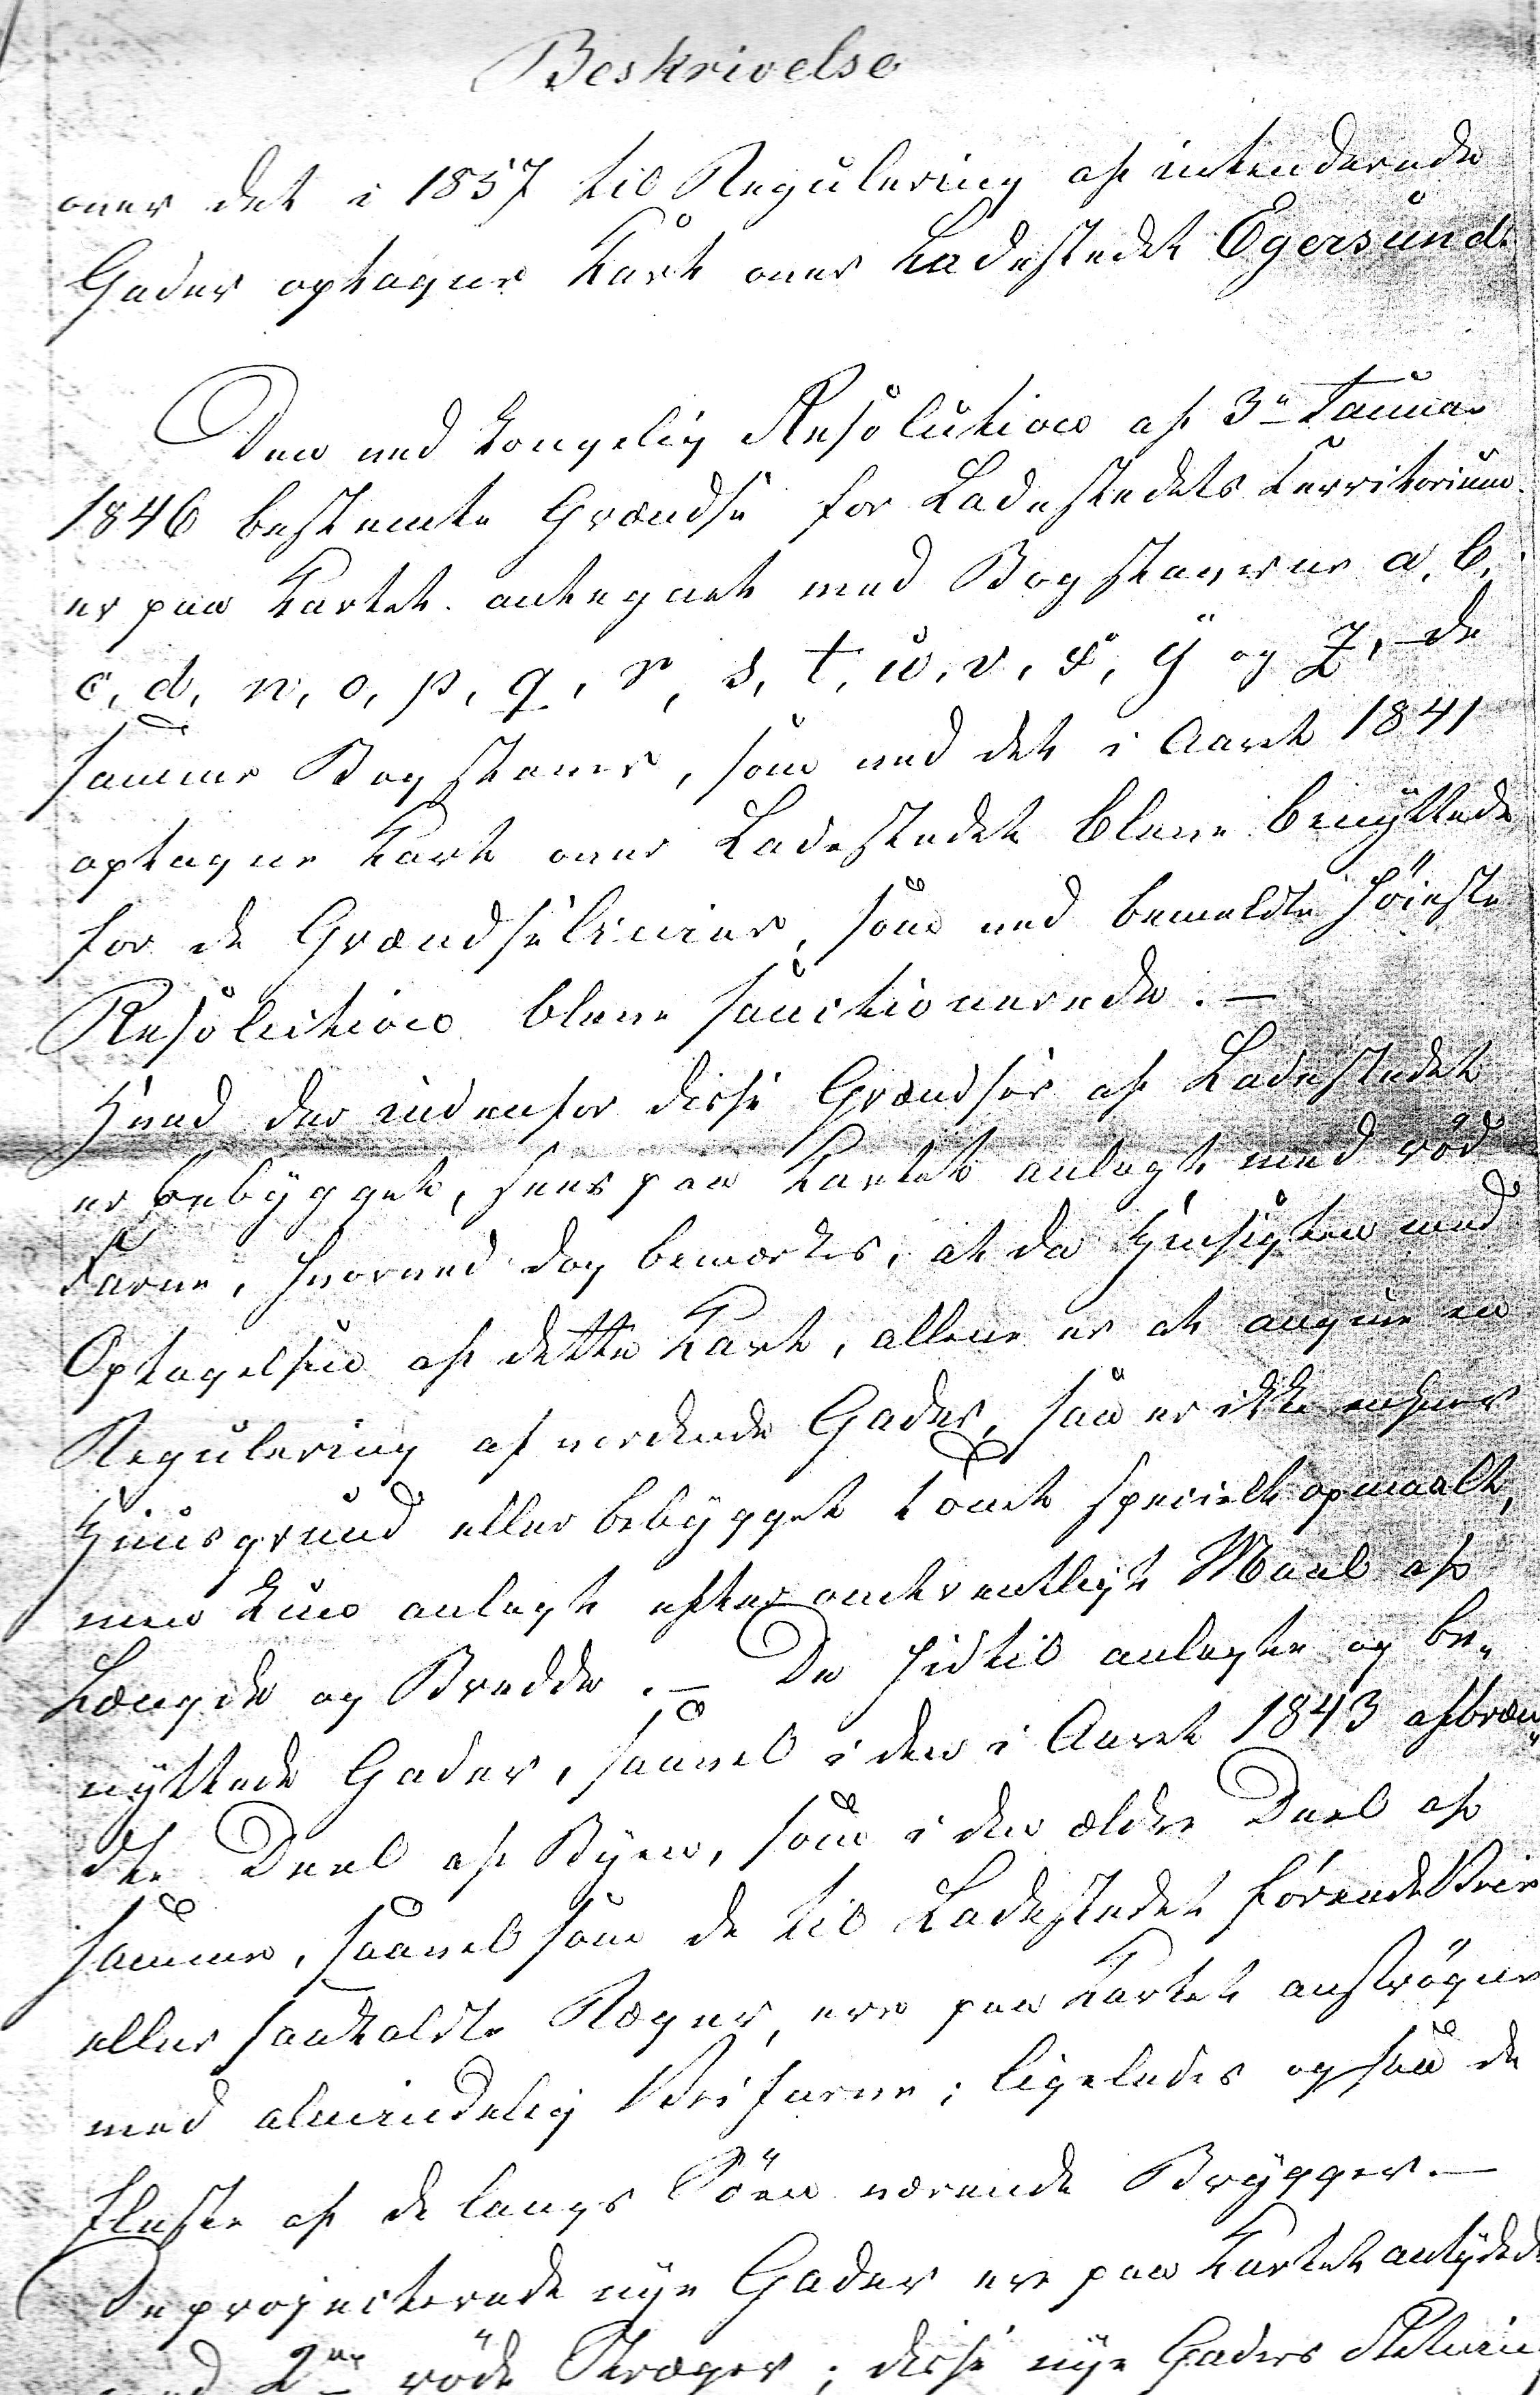 Beskrivelse
over det i 1857 til Regulering af intenderede
Gader optagne Kart over Ladestedet Egersund.
Den ved Kongelig Resolution af 3die Januar
1846 bestemte Grændse for Ladestedets Territorium
er paa Kartet antegnet med Bogstaverne a, b,
c, d, n, o, p, q, r, s, t, u, v, x, y og z, de
samme Bogstaver, som ved det i Aaret 1841
optagne Kart over Ladestedet bleve benyttede
for de Grændselinier, som ved bemeldte høieste
Resolution bleve sanctionerede. —
Hvad der indenfor disse Grændser af Ladestedet
er bebygget, sees paa Kartet anlagt med rød
Farve, hvorved dog bemærkes, at da Hensigten med
Optagelsen af dette Kart, allene er at angive en
Regulering af vordende Gader, saa er ikke enhver
Huusgrund eller bebygget Tomt specielt opmaalt,
men kun anlagt efter omtrentligt Maal af
Længde og Bredde. — De hidtil anlagte og be-
nyttede Gader, saavel i den i Aaret 1843 afbræn-
dte Deel af Byen, som i den ældre Deel af
samme, saavelsom de til Ladestedet førende Veie
eller saakaldte Ræger, ere paa Kartet anstrøgne
med almindelig Veifarve; ligeledes ogsaa de
fleste af de langs Søen værende Brygger. —
De projecterede nye Gader ere paa Kartet antydede
med 2de røde Streger; disse nye Gaders